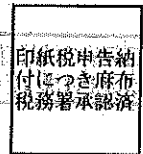 印紙税申告納
付につき麻布
税務署承認済